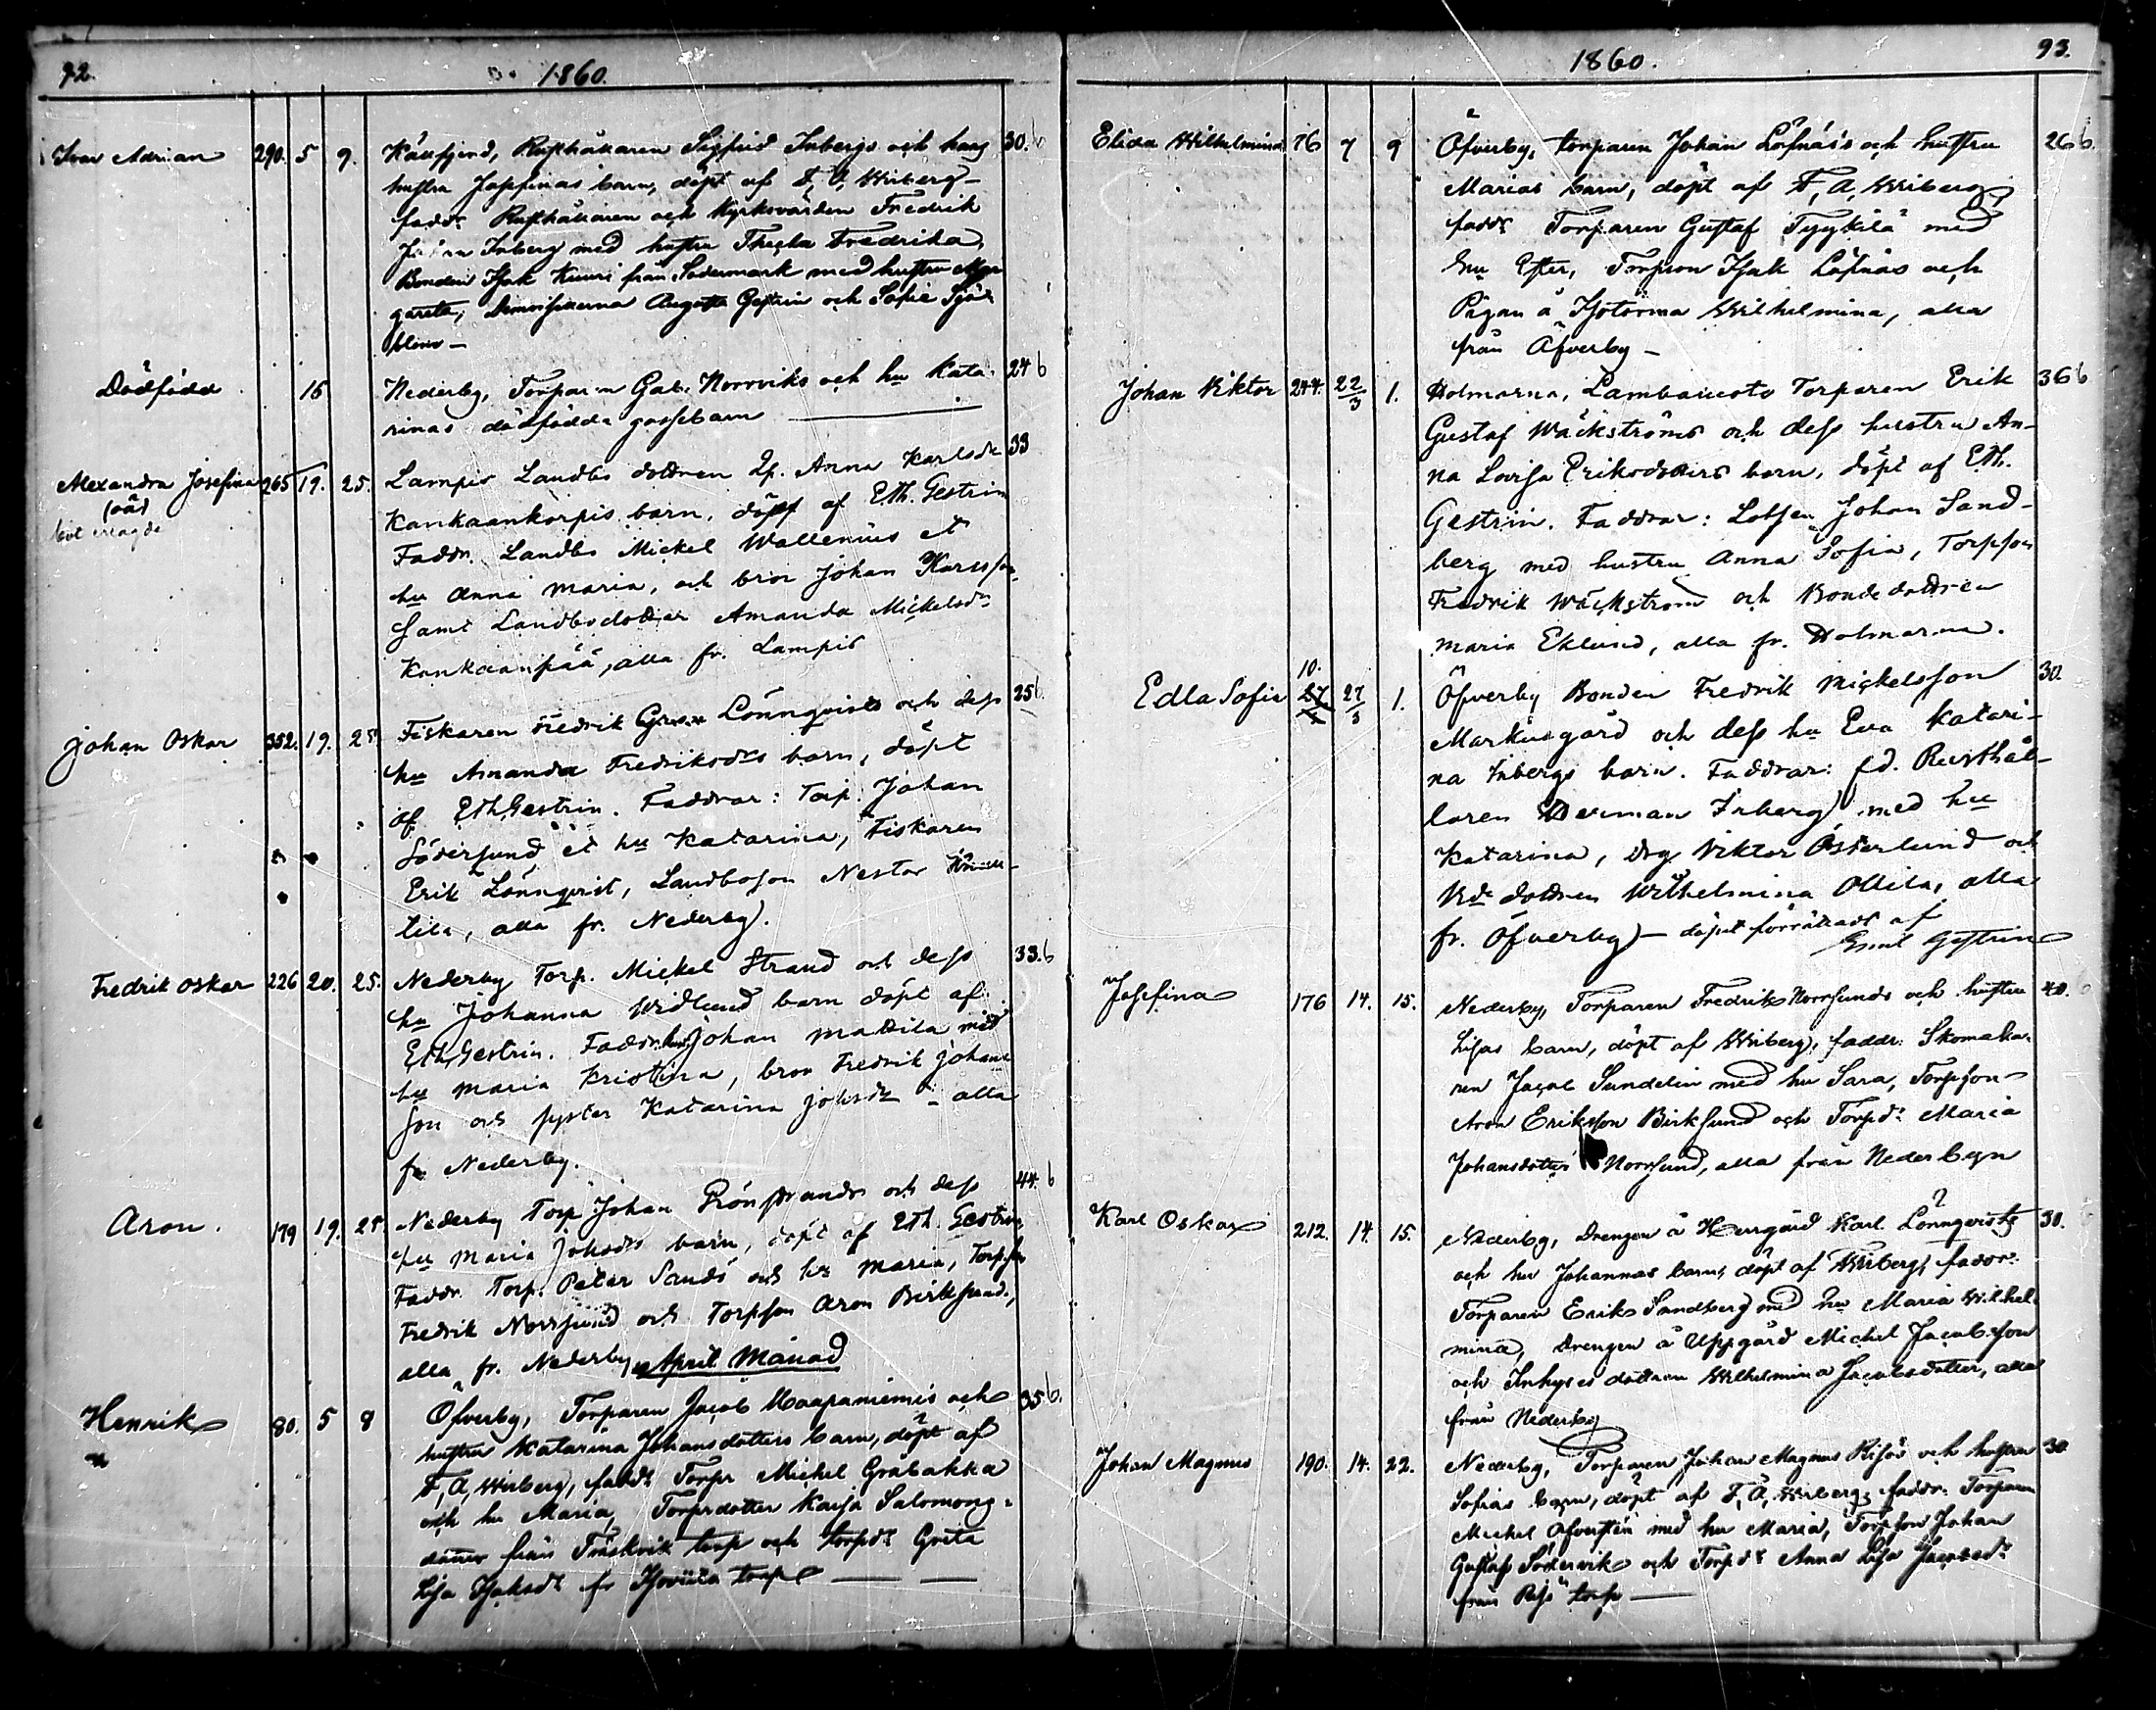 92.
1860.
Ivar Adrian 290. 5 9. Rusthållaren Sigfrid Inbergs och hans 30.
hustru Josefinas barn, döpt af F, A, Wiberg –
faddr. Rusthållaren och Kyrkovärden Fredrik
Inberg med hustru Thecla Fredrika,
Bonden Isak från Södermark med hustru Mar
gareta, Augusta Gestrin och Sofie Sjö-
blom –
Dödfödd 16 Nederby, Torparen Gab. Norrviks och hu Kata- 24 b
rinas dödfödda gossebarn
Alexandra Josefina 265 19. 25. Lampis Landbo dottren Anna Karlsdr 33
(oä)
Kankaankorpis barn, döpt af E.Th. Gestrin
Faddr. Landbo Mickel Wallenius et
hu Anna Maria, och bror Johan Karlsson,
samt Landbodotter Amanda Mickelsdr
Kankaanpää, alla fr. Lampis
Johan Oskar 352. 19. 25. Fiskaren Fredrik Lönnqvists och dess 25 b
hu Amanda Fredriksdrs barn, döpt
af E.Th. Gestrin. Faddrar: Torp. Johan
Södersund et hu Katarina, Fiskaren
Erik Lönnqvist, Landboson Nestor
tila, alla fr. Nederby.
Fredrik Oskar 226 20. 25. Nederby Torp. Mickel Strand och dess 33. b
hu Johanna Widlund barn döpt af
E.Th. Gestrin. Faddr. Johan Mattila med
hu Maria Kristina, bror Fredrik Johans
son och syster Katarina Johsdr – alla
fr Nederby.
Aron. 179 19. 25. Nederby Torp Johan Grönstrands och dess 44. b
hu Maria Johsdrs barn, döpt af E.Th. Gestrin,
Faddr. Torp. Petter Sands och hu Maria, Torpson
Fredrik Norrsund och Torpson Aron Birksund,
alla fr. Nederby. April Månad
Henrik 80. 5 8 Öfverby, Torparen Jacob Maapaniemis och 35 b.
hustru Katarina Johansdotters barn, döpt af
F, A, Wiberg, faddr Torpr Michel Gråbakka
och hu Maria, Torpredotter Kaisa Salomons-
dotter från Träskvik torp och torpdr Greta
Lisa Isaksdr fr torp
1860.
93.
Elida Wilhelmina 76 7 9 Öfverby, torparen Johan Löfnäs's och hustru 26 b.
Marias barn, döpt af F, A, Wiberg,
faddr Torparen Gustaf Tyykilä med
hu Ester, Torpson Isak Löfnäs och
Pigan å Isotorma Wilhelmina, alla
från Öfverby –
Johan Viktor 244. 22/3 1. Holmarna, Torparen Erik 36 b
Gustaf Wäckströms och dess hustru An-
na Lovisa Eriksdotters barn, döpt af E.Th.
Gestrin. Faddrar: Lotsen Johan Sand-
berg med hustru Anna Sofia, Torpson
Fredrik Wäckström och Bondedottren
Maria Eklund, alla fr. Holmarna.
10.
Edla Sofia 27 27/3 1. Öfverby Bonden Fredrik Mickelsson 30.
Markusgård och dess hu Eva Katari-
na Inbergs barn. Faddrar: fd. Rusthål-
laren Herman Inberg med hu
Katarina, drg Viktor Österlund och
dottren Wilhelmina Ollila, alla
fr. Öfverby – döpt förrättadt af
Emil Gestrin
Josefina 176 14. 15. Nederby, Torparen Fredrik Norrsunds och hustru 40. b
Lisas barn, döpt af Wiberg, faddr: Skomaka-
ren Jacob Sundelin med hu Sara, Torpson
Aron Eriksson Birksund och Torpdr Maria
Johansdotter Norrsund, alla från Nederbyn
Karl Oskar 212. 14. 15. Nederby, Drengen å Herrgård Karl Lönnqvists 30.
och hu Johannas barn, döpt af Wiberg, faddr.
Torparen Erik Sandberg med hu Maria Wilhel-
mina, Drengen å Uppgård Michel Jacobsson
och Inhyses dottren Wilhelmina Jacobsdotter, alla
från Nederby
Johan Magnus 190. 14. 22. Nederby, Torparen Johan Magnus Risös och hustru 30.
Sofias barn, döpt af F, A, Wiberg, faddr. Torparen
Michel med hu Maria, Torpson Johan
Gustaf Södervik och Torpdr Anna Lisa Jacobsdr
från Risö torp